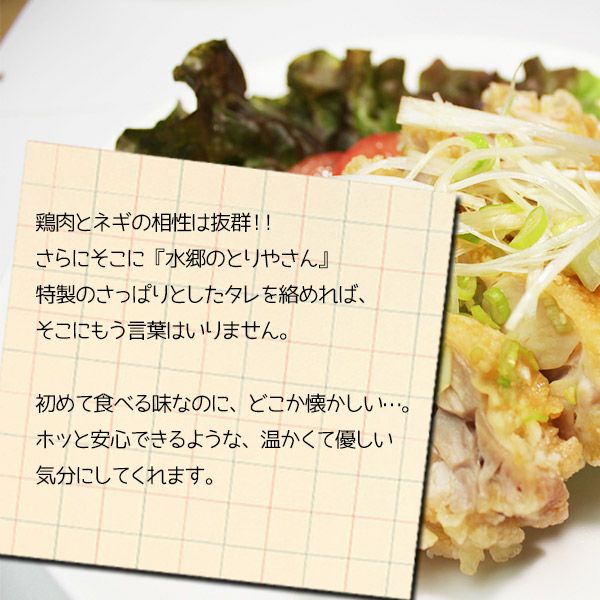 鶏肉とネギの相性は抜群!!
さらにそこに『水郷のとりやさん』
特製のさっぱりとしたタレを絡めれば、
そこにもう言葉はいりません。
初めて食べる味なのに、どこか懐かしい…。
ホッと安心できるような、温かくて優しい
気分にしてくれます。